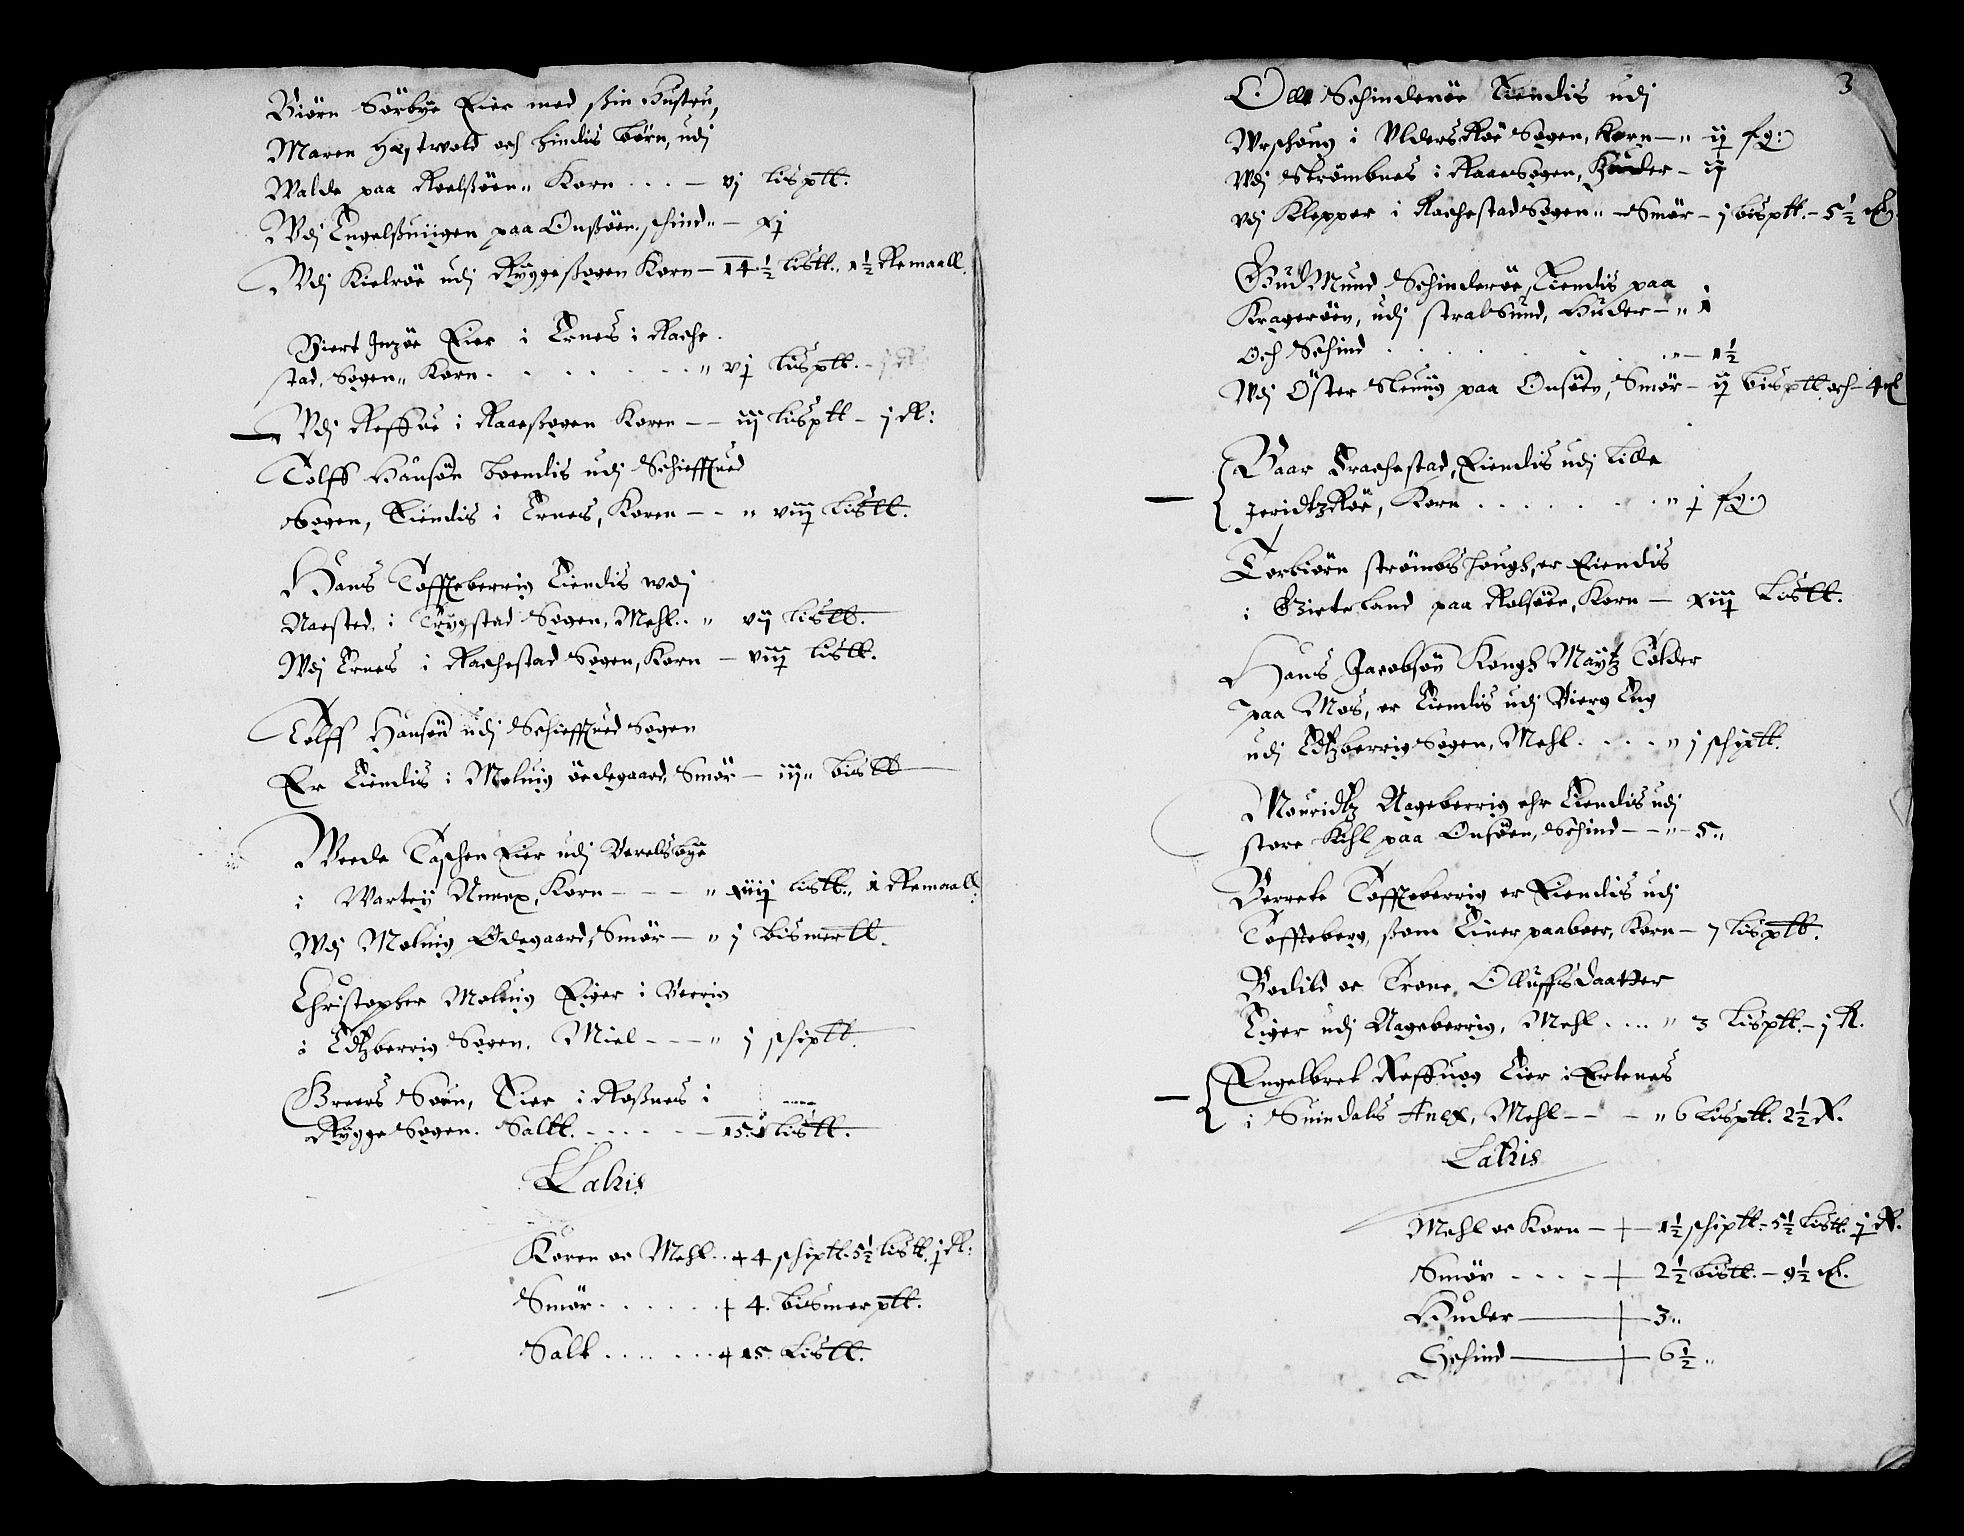 Biørn Sørbye Eier med ßin Hustru,
Maren Hestwold och hindis børn, udj
Walde paa Roelßøen„ Korn . . . — vj lisptt.
Wdj Engelßuiigen paa Onßøen, schind„ — xj
Wdj Kielrøe udj Ryggeßogen Korn — 14½ listt„ 1½ Remaall.
Biert Inzøe Eier i Ernes i Rache
stad, Sogen„ Korn . . . . . . „ vj lisptt. – j R.
Vdj Reffue i Raaeßogen Koren — — iij lisptt – j R:
Tolff Hansøn boendis udj Schieffued
Sogen, Eiendis i Ernes, Koren — - „ viij listt.
Hans Toffteberrig Eiendis wdj
Naested i Trygstad Sogen, Mehl . . „ vij listt.
Wdj Ernes i Rachestad Sogen, Korn — viij listt.
Tolff Hansøn udj Schieffued Sogen
Er Eiendis i Moluig ødegaard, Smør — iij„ bistt
Weede Taschen Eier udj Berelsbye
i Warteig Annex, Korn — — — „ xiiij listt„ 1 Remaall:
Wdj Moluig Ødegaard, Smør — „ j bismertt.
Christopher Moluig Eiger i Berrig
i Edtzberrig Sogen, Miel — — — „ j schiptt.
Greers Søin, Eier i Roßnes i
Rygge Sogen. Saltt. — — — 15„ listt.
Lateris
Koren oc Mehl . . + 4 schiptt. 5½ listt. j R:
Smør . . . . . . + 4. bismer ptt.
Salt . . . . . . + 15 Listt.
3
Olle Schinderøe Eiendis udj
Wrschoug i Uldersrøe Sogen, Korn — „ ij fg:
Wdj Strømbnes i Raae Sogen, Huder — ij
vdj Klepper i Rachestad Sogen„ — Smør — j bisptt. – 5½ mk.
Gudmund Schinderøe, Eiendis paa
Kragerøen, udj stralsund, Huder — „ 1
Och Schind . . . . . . „ — 1½
Wdj Øster Eluiig paa Onsøen, Smør — ij bisptt och – 4 mk
Baar Drachestad, Eiendis udj lille
Jeridtzrøe, Korn . . . . . . „ j fg:
Torbiørn strømbshougs, er Eiendis
i Gieteland paa Rolsøen, Korn — xiij Listt.
Hans Jacobsøn Kongs Maytz Tolder
paa Mos, er Eiendis udj Bierg Eng
udj Edtzberrig Sogen, Mehl . . . . „ j schiptt.
Mouridtz Aageberrig ehr Eiendis udj
store Kihl paa Onsøen, Schind — — „ — 5„
Berrete Toffteberrig er Eiendis udj
Toffteberg, ßom Einer paaboer, Korn — 7 lisptt.
Bodild oc Trone Olluffsdaatter
Eiger udj Aageberrig, Mehl . . . . „ 3 lisptt. – j R.
Engelbret Reffuog Eier i Ertenes
i Suindals Anex, Mehl — — — „ 6 Lisptt. 2½ R.
Lateris
Mehl oc Korn — + — 1½ schiptt – 5½ listt. j R.
Smør - - - - + — 2½ bistt. – 9½ mk.
Huder — + — 3„
Schind — + — 6½„